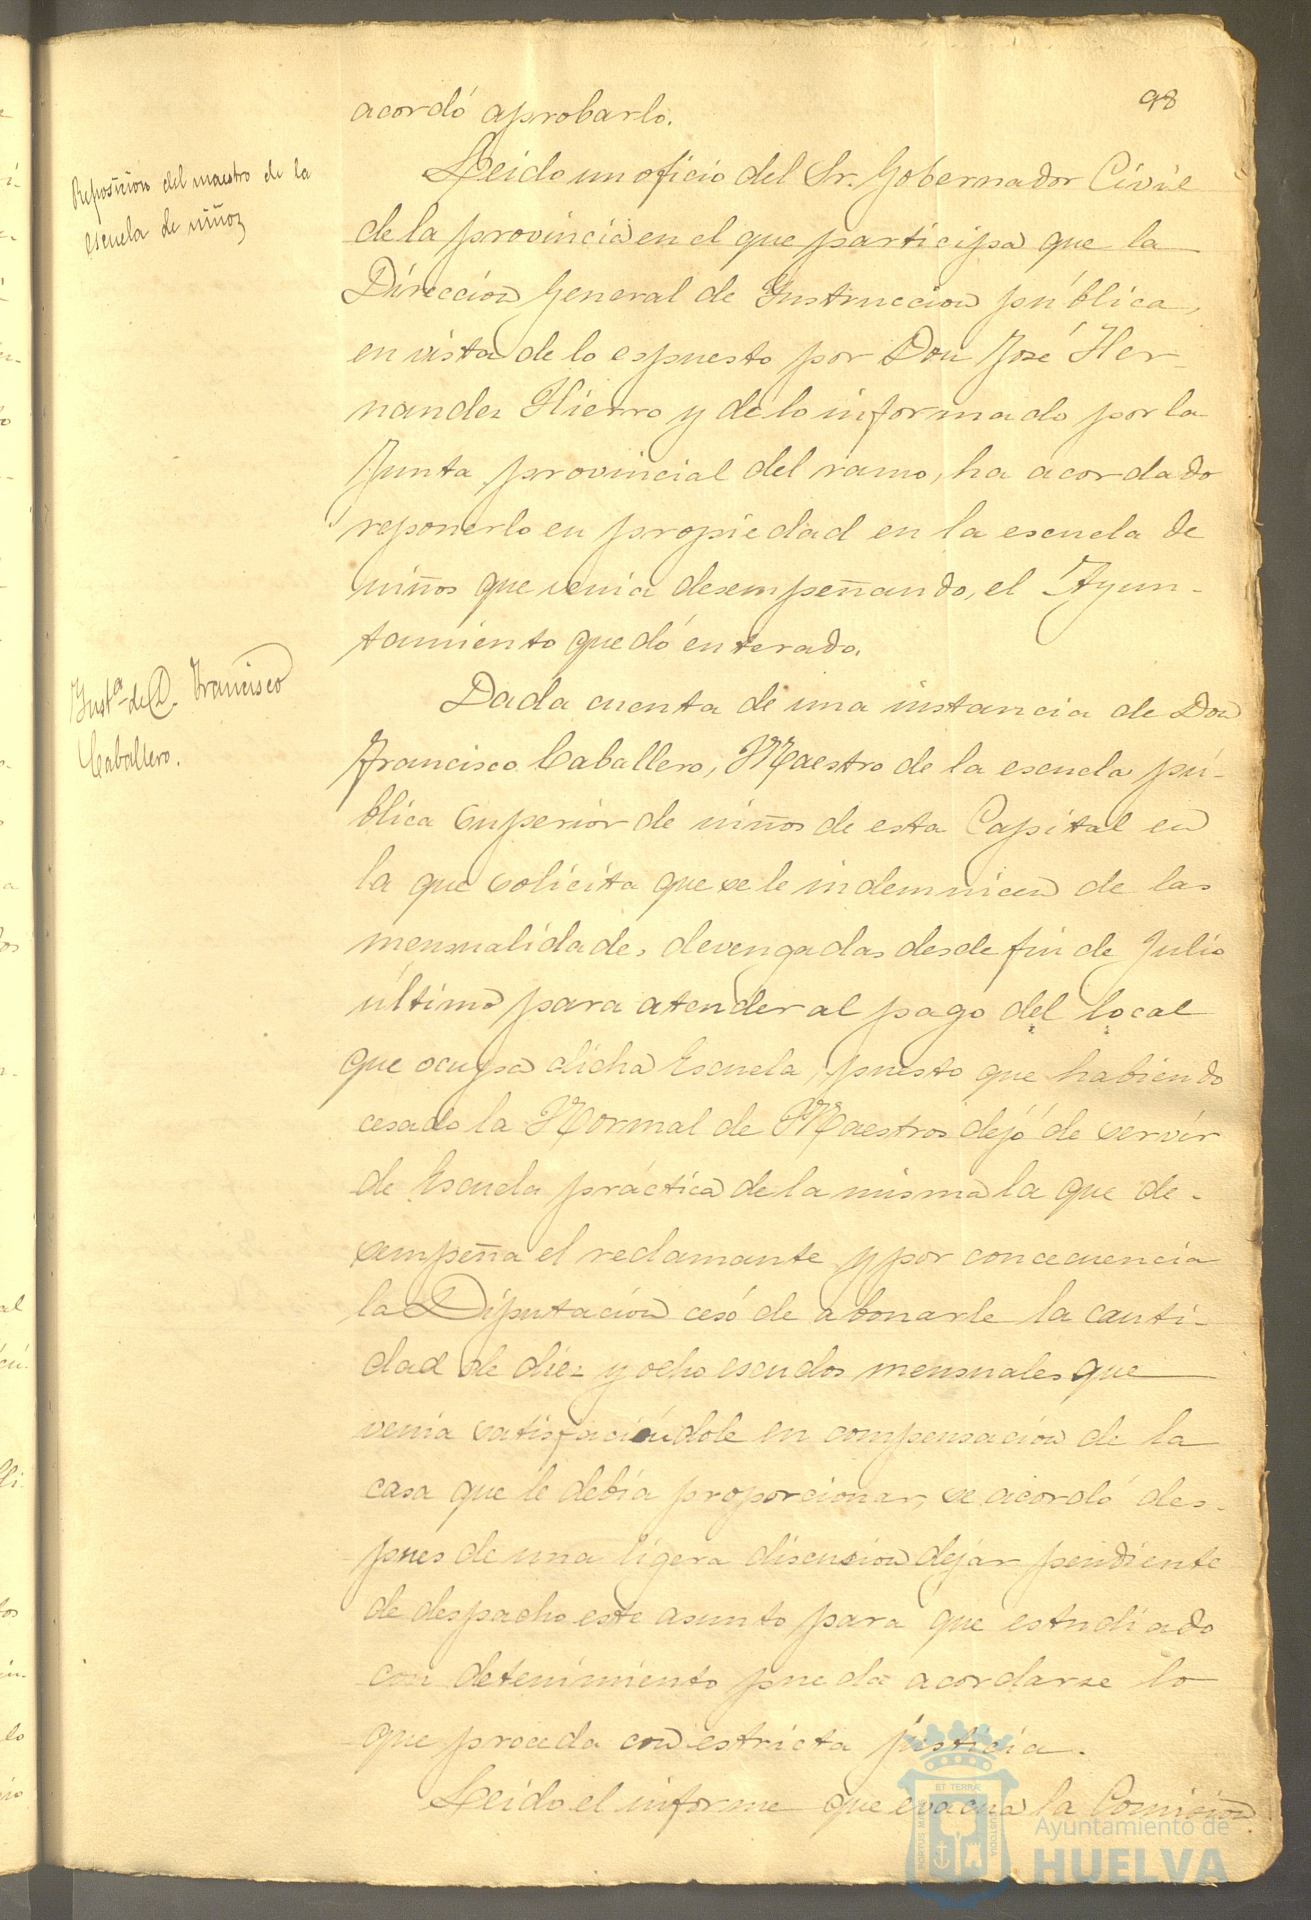 98
acordó aprobarlo.
Reposicion del maestro de la
escuela de niños
Leido un oficio del Sr. Gobernador Civil
de la provincia en el que participa que la
Direccion General de Instruccion pública,
en vista de lo espuesto por Don José Her-
nandez Hierro y de lo informado por la
Junta provincial del ramo, ha acordado
reponerlo en propiedad en la escuela de
niños que venia desempeñando, el Ayun-
tamiento quedó enterado.
Inst.ª de D. Francisco
Caballero.
Dada cuenta de una instancia de Don
Francisco Caballero, Maestro de la escuela pú-
blica Superior de niños de esta Capital en
la que solicita que se le indemnicen de las
mensualidades devengadas desde fin de Julio
último para atender al pago del local
que ocupa dicha Escuela, puesto que habiendo
cesado la Normal de Maestros dejó de servir
de Escuela práctica de la misma la que de-
sempeña el reclamante y por concecuencia
la Diputacion cesó de abonarle la canti-
dad de diez y ocho escudos mensuales que
venia satisfaciéndole en compensacion de la
casa que le debía proporcionar, se acordó des-
pues de una ligera discusion dejar pendiente
de despacho este asunto para que estudiado
con detenimiento pueda acordarse lo
que proceda con estricta justicia.
Leido el informe que evacua la Comision
PORTUS MARIS
ET TERRÆ
CUSTODIA
Ayuntamiento de
HUELVA